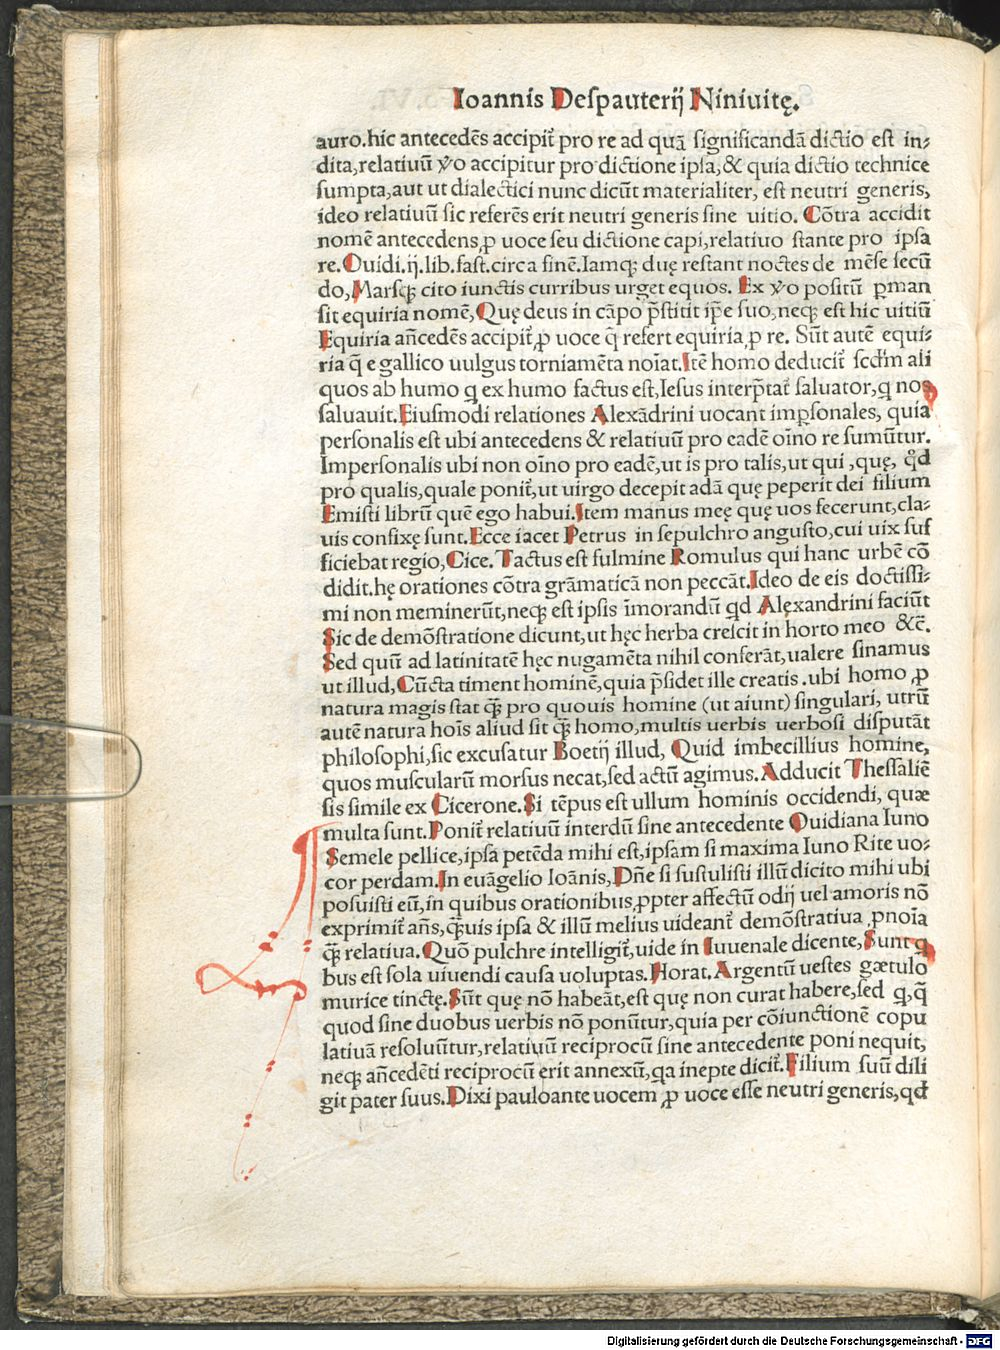 Ioannis Despauterij Niniuitę.
auro.hic antecedēs accipit̃ pro re ad quā significandā dictio est in⸗
dita,relatiuū ꝟo accipitur pro dictione ipsa,& quia dictio technice
sumpta,aut ut dialectici nunc dicūt materialiter, est neutri generis,
ideo relatiuū sic referēs erit neutri generis sine uitio. Cōtra accidit
nomē antecedens,ꝓ uoce seu dictione capi,relatiuo stante pro ipsa
re.Ouidi.ij.lib.fast.circa finē.Iamqꝫ duę restant noctes de mēse secū
do,Marsqꝫ cito iunctis curribus urget equos. Ex ꝟo positū ꝑman
sit equiria nomē,Quę deus in cāpo p̄stitit ip̄e suo,neqꝫ est hic uitiū
Equiria añcedēs accipit̃,ꝓ uoce q̄ refert equiria,ꝓ re. Sūt autē equi⸗
ria q̄ e gallico uulgus torniamēta noīat.Itē homo deducit̃ scdm̄ ali
quos ab humo ꝙ ex humo factus est,Iesus interp̄tat̃ saluator,ꝗ nos
saluauit.Eiusmodi relationes Alexādrini uocant impꝑsonales, quia
personalis est ubi antecedens & relatiuū pro eadē oīno re sumūtur.
Impersonalis ubi non oīno pro eadē,ut is pro talis,ut qui ,quę, qd̛
pro qualis,quale ponit̃,ut uirgo decepit adā quę peperit dei filium
Emisti librū quē ego habui.Item manus meę quę uos fecerunt,cla⸗
uis confixę sunt.Ecce iacet Petrus in sepulchro angusto,cui uix suf
ficiebat regio,Cice.Tactus est fulmine Romulus qui hanc urbē cō
didit.hę orationes cōtra grāmaticā non peccāt.Ideo de eis doctissi⸗
mi non meminerūt,neqꝫ est ipsis īmorandū qd̛ Alęxandrini faciūt
Sic de demōstratione dicunt,ut hęc herba crescit in horto meo &c̄.
Sed quū ad latinitatē hęc nugamēta nihil conferāt,ualere sinamus
ut illud,Cūcta timent hominē,quia p̄sidet ille creatis.ubi homo ꝓ
natura magis stat q̄ꝫ pro quouis homine (ut aiunt) singulari, utrū
autē natura hoīs aliud sit q̄ꝫ homo,multis uerbis uerbosi disputāt
philosophi,sic excusatur Boetij illud, Quid imbecillius homine,
quos muscularū morsus necat,sed actū agimus.Adducit Thessaliē
sis simile ex Cicerone.Si tēpus est ullum hominis occidendi, quæ
multa sunt.Ponit̃ relatiuū interdū sine antecedente Ouidiana Iuno
Semele pellice,ipsa petēda mihi est,ipsam si maxima Iuno Rite uo⸗
cor perdam.In euāgelio Ioānis,Dñe si sustulisti illū dicito mihi ubi
posuisti eū,in quibus orationibus,ꝓpter affectū odij uel amoris nō
exprimit̃ añs,q̄ꝫuis ipsa & illū melius uideant̃ demōstratiua ꝓnoīa
q̄ꝫ relatiua.Quō pulchre intelligit̃,uide in Iuuenale dicente,Sunt ꝗ
bus est sola uiuendi causa uoluptas.Horat.Argentū uestes gætulo
murice tinctę.Sūt quę nō habeāt,est quę non curat habere,sed ꝗ,q̄
quod sine duobus uerbis nō ponūtur,quia per cōiunctionē copu
latiuā resoluūtur,relatiuū reciprocū sine antecedente poni nequit,
neqꝫ añcedēti reciprocū erit annexū,ꝗa inepte dicit̃.Filium suū dili
git pater suus.Dixi pauloante uocem ꝓ uoce esse neutri generis,qd̛
Digitalisierung gefördert durch die Deutsche Forschungsgemeinschaft - DFG